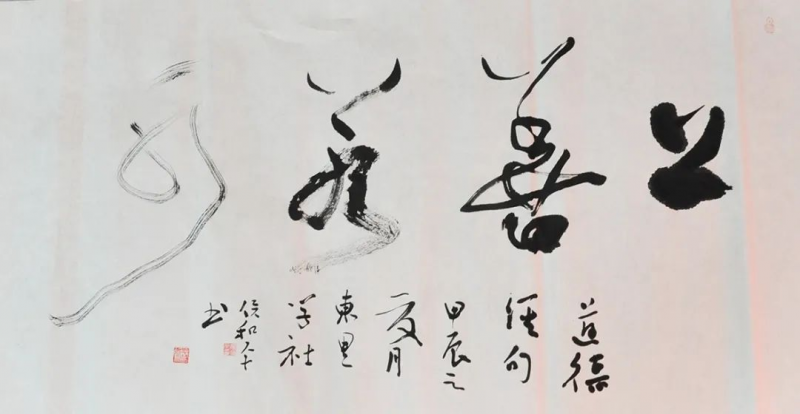 上善若水
道德
經句
甲辰之
夏月
東里
学社
书